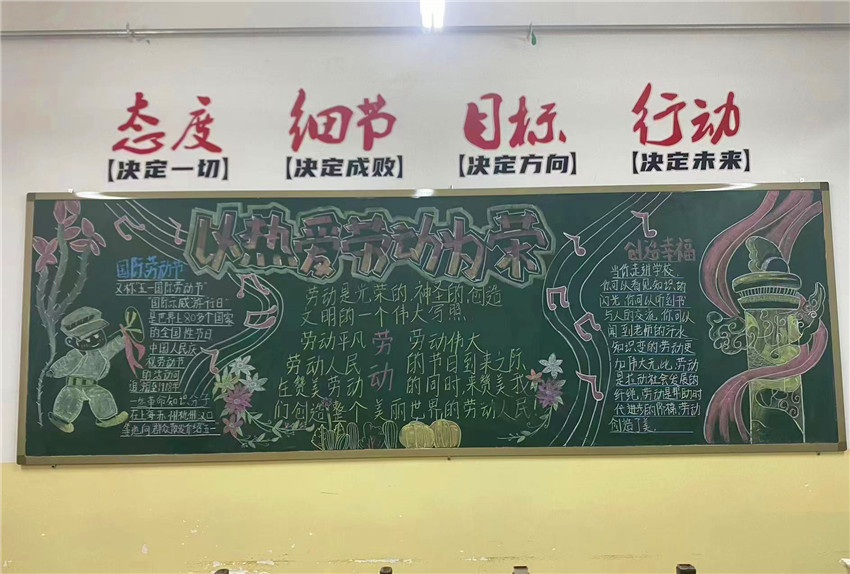 态度 细节 目标 行动
【决定一切】 【决定成败】 【决定方向】 【决定未来】
以热爱劳动为荣
国际劳动节
又称"五一国际劳动节"
"国际示威游行日"
是世界上80多个国家
的全国性节日
中国人民庆
祝劳动节
的活动可
追溯至1918年
一些革命知识分子
在上海苏州杭州汉口
等地向群众散发介绍五一
劳动是光荣的，神圣的创造
文明的一个伟大写照
劳动平凡 劳动伟大
劳动
劳动人民 的节日到来之际
在赞美劳动 的同时来赞美我
们创造整个美丽世界的劳动人民!
创造幸福
当你走进学校
你可以看见知识的
闪光，你可以听到书
与人的交流，你可以
闻到老师的汗水
知识变的劳动更
加伟大光此，劳动
是推动社会发展的
纤绳，劳动是帮助时
代进步的阶梯，劳动
创造了美